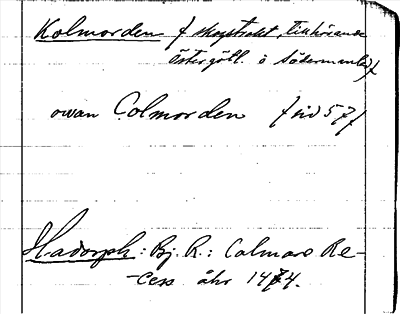 Kolmorden f skogstrakt, tillhörande
Östergötl. o Södermanld f
owan Colmorden f sid 57 f
Hadorph: Bj. R.: Calmare Re-
-cess åhr 1474.